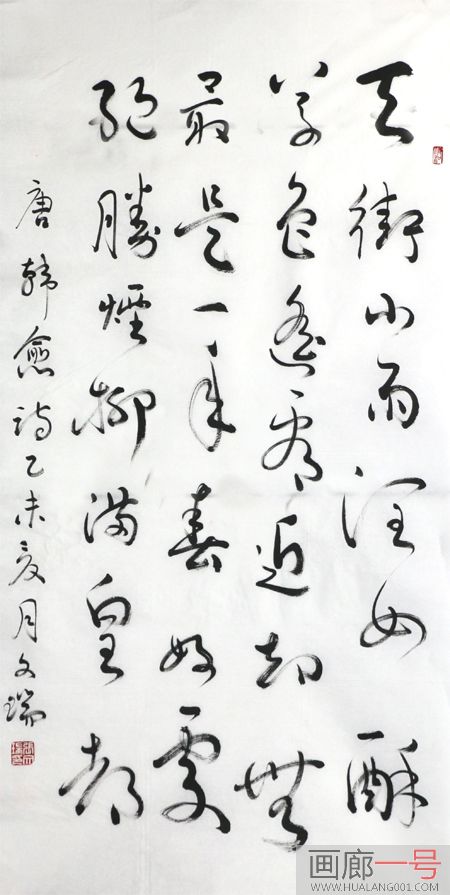 天街小雨潤如酥
草色遙看近却無
最是一年春好處
絕勝煙柳滿皇都
唐韓愈詩乙未夏月文瑞
画廊一号
WWW.HUALANG001.COM